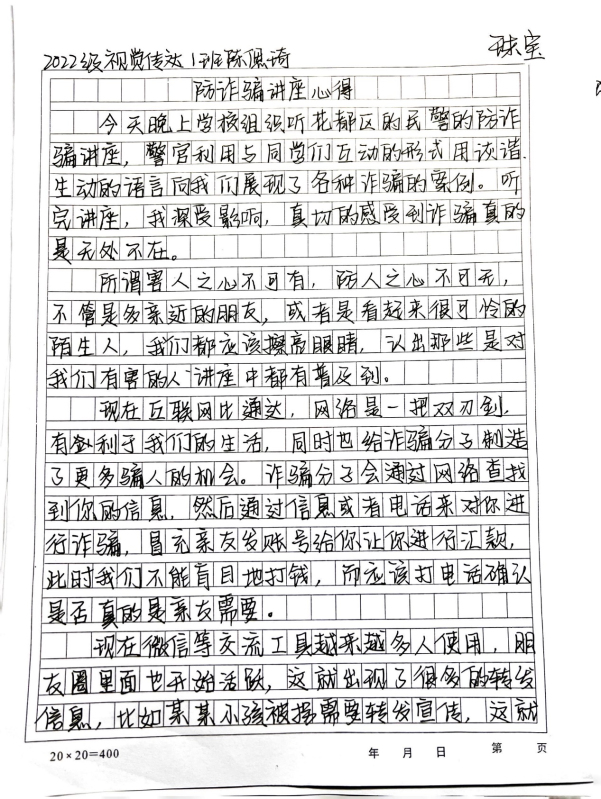 珠宝
2022级视觉传达1班陈佩琦
防诈骗讲座心得
今天晚上学校组织听花都区的民警的防诈
骗讲座，警官利用与同学们互动的形式用诙谐
生动的语言向我们展现了各种诈骗的案例。听
完讲座，我深受影响，真切的感受到诈骗真的
是无处不在。
所谓害人之心不可有，防人之心不可无，
不管是多亲近的朋友，或者是看起来很可怜的
陌生人，我们都应该擦亮眼睛，认出那些是对
我们有害的人，讲座中都有普及到。
现在互联网比通达，网络是一把双刃剑，
有利于我们的生活，同时也给诈骗分子制造
了更多骗人的机会。诈骗分子会通过网络查找
到你的信息，然后通过信息或者电话来对你进
行诈骗，冒充亲友发账号给你让你进行汇款，
此时我们不能盲目地打钱，而应该打电话确认
是否真的是亲友需要。
现在微信等交流工具越来越多人使用，朋
友圈里面也开始活跃，这就出现了很多的转发
信息，比如某某小孩被拐需要转发宣传，这就
20×20=400 年 月 日 第 页